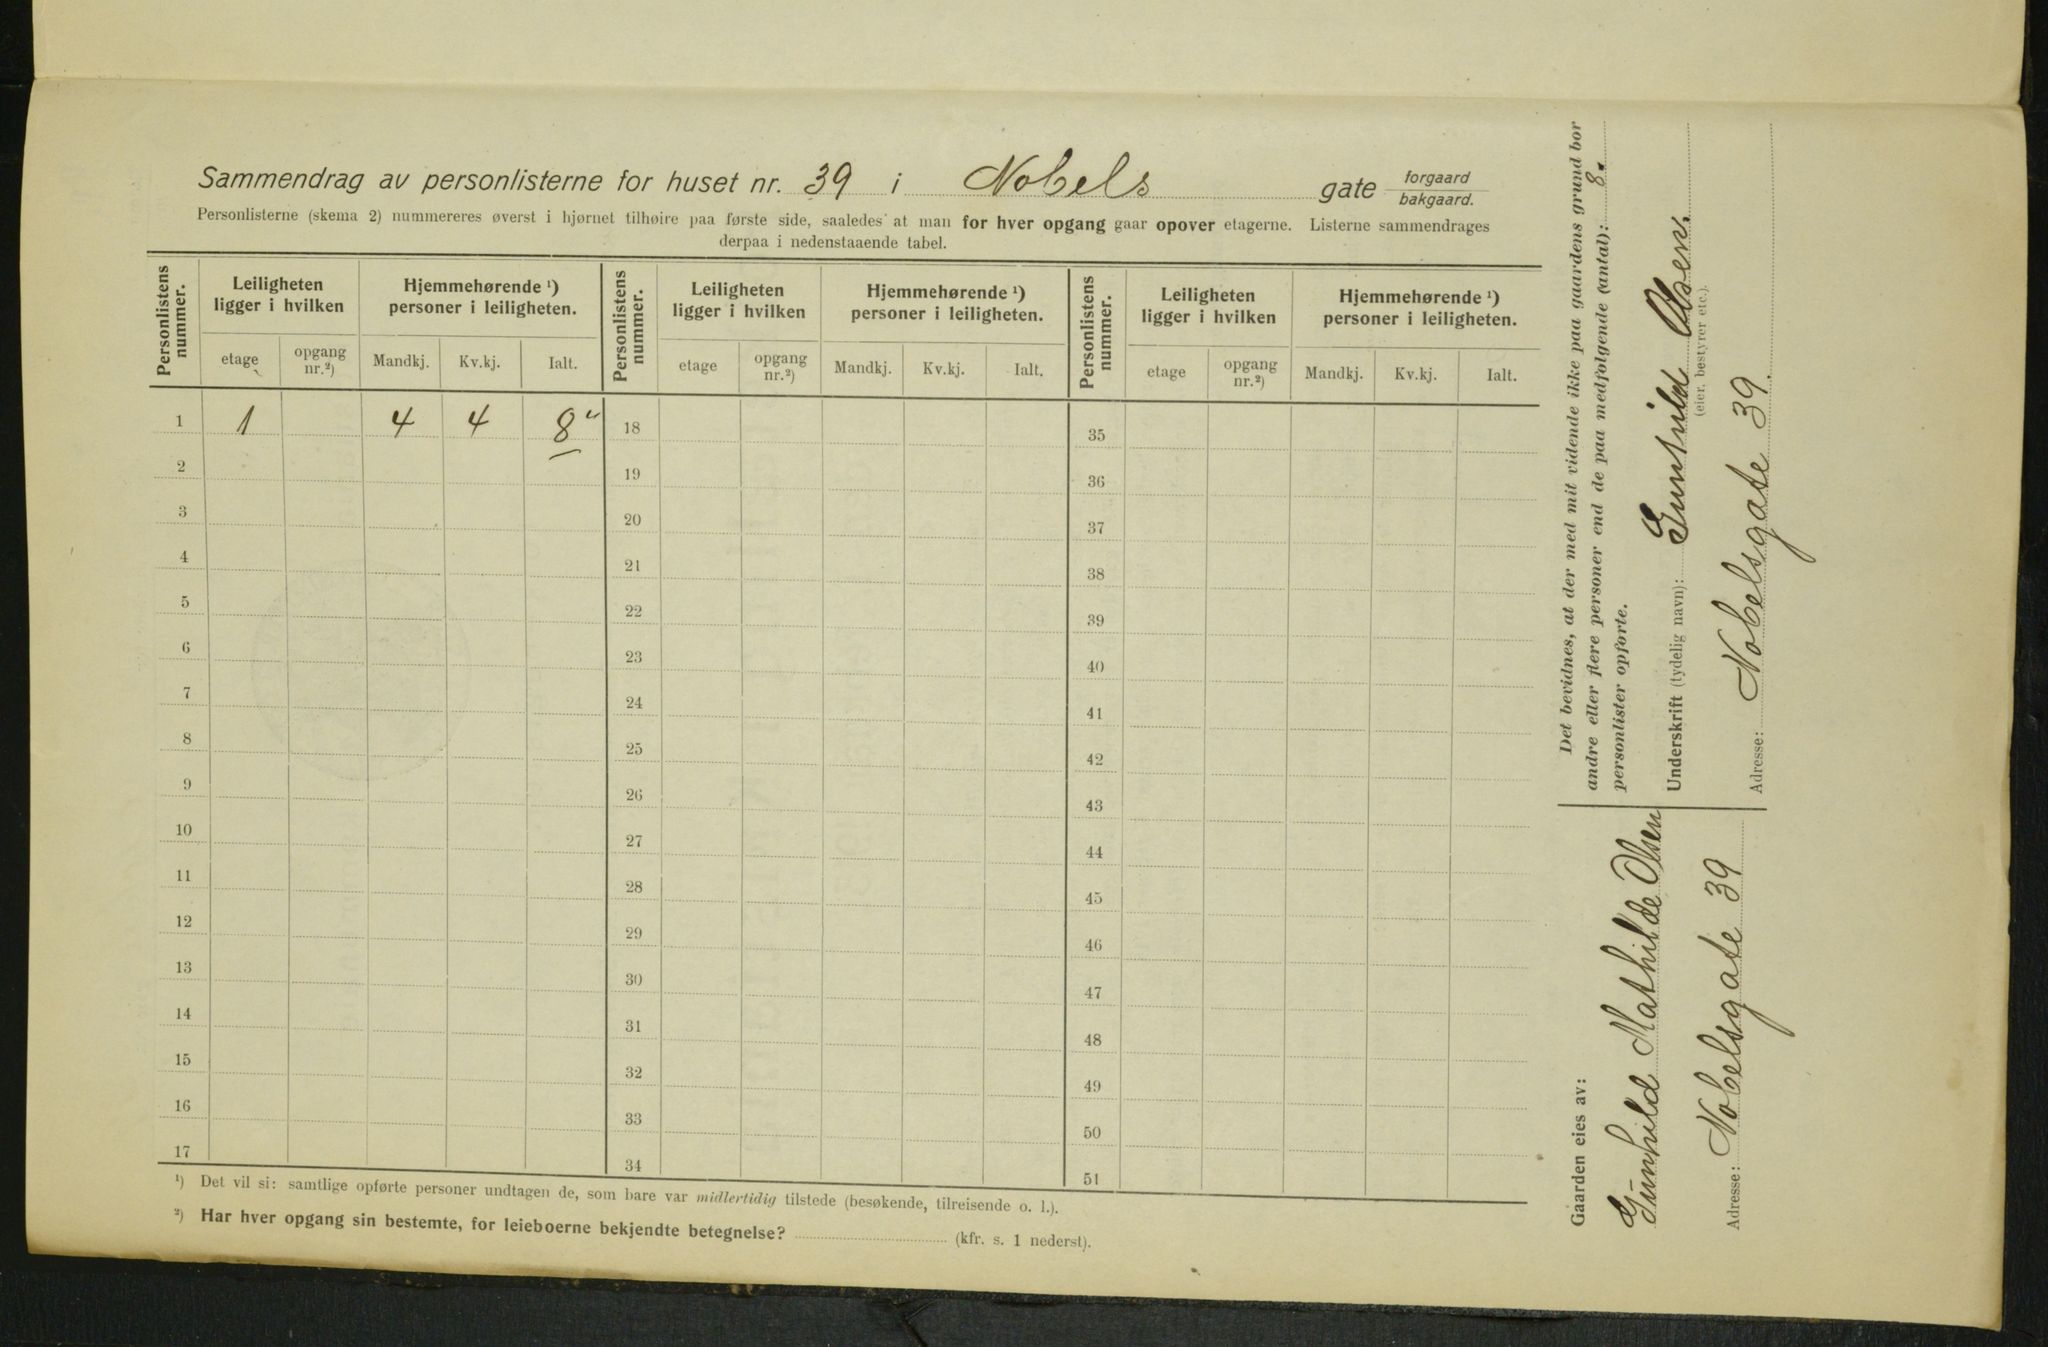 Sammendrag av personlisterne for huset nr. 39 i Nobels gate forgaard / bakgaard.
Personlisterne (skema 2) nummereres øverst i hjørnet tilhøire paa første side, saaledes at man for hver opgang gaar opover etagerne. Listerne sammendrages
derpaa i nedenstaaende tabel.
Personlistens nummer. | Leiligheten ligger i hvilken | Hjemmehørende ¹) personer i leiligheten. | Personlistens nummer. | Leiligheten ligger i hvilken | Hjemmehørende ¹) personer i leiligheten. | Personlistens nummer. | Leiligheten ligger i hvilken | Hjemmehørende ¹) personer i leiligheten.
etage | opgang nr.²) | Mandkj. | Kv.kj. | Ialt. | etage | opgang nr.²) | Mandkj. | Kv.kj. | Ialt. | etage | opgang nr.²) | Mandkj. | Kv.kj. | Ialt.
1 | 1 | 4 | 4 | 8 | 18 | 35
2 | 19 | 36
3 | 20 | 37
4 | 21 | 38
5 | 22 | 39
6 | 23 | 40
7 | 24 | 41
8 | 25 | 42
9 | 26 | 43
10 | 27 | 44
11 | 28 | 45
12 | 29 | 46
13 | 30 | 47
14 | 31 | 48
15 | 32 | 49
16 | 33 | 50
17 | 34 | 51
¹) Det vil si: samtlige opførte personer undtagen de, som bare var midlertidig tilstede (besøkende, tilreisende o. l.).
²) Har hver opgang sin bestemte, for leieboerne bekjendte betegnelse? (kfr. s. 1 nederst).
Det bevidnes, at der med mit vidende ikke paa gaardens grund bor
andre eller flere personer end de paa medfølgende (antal): 8.
personlister opførte.
Underskrift (tydelig navn): Gunhild Olsen.
(eier, bestyrer etc.).
Adresse: Nobelsgate 39.
Gaarden eies av:
Gunhild Mathilde Olsen
Adresse: Nobelsgate 39